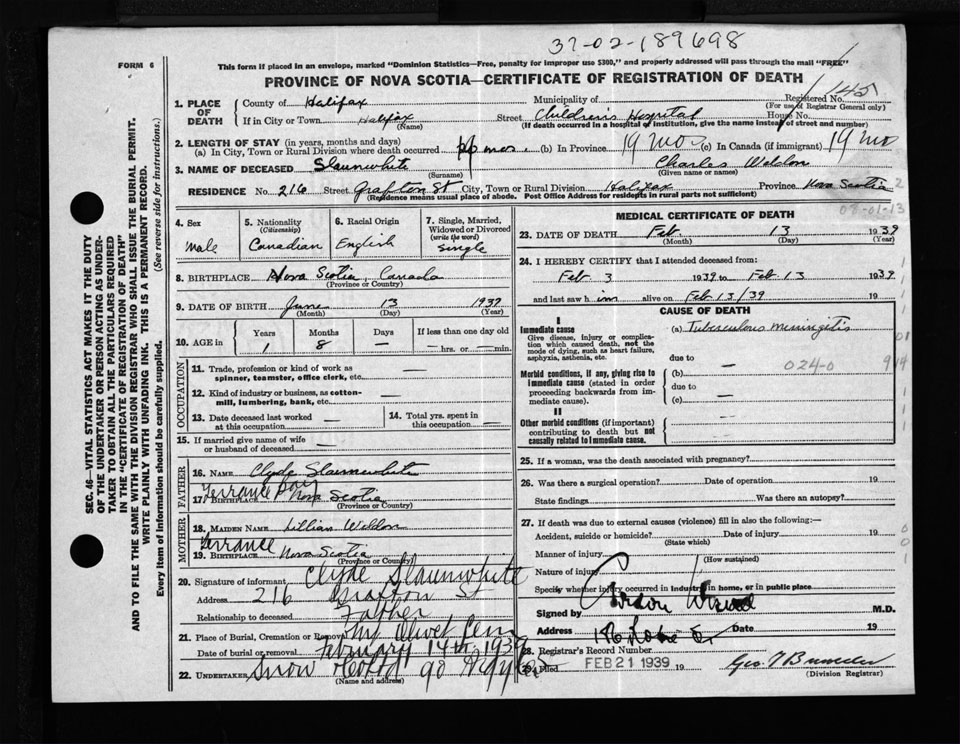 37-02-189698
FORM 6
This form if placed in an envelope, marked "Dominion Statistics—Free, penalty for improper use $300," and properly addressed will pass through the mail "FREE"
PROVINCE OF NOVA SCOTIA—CERTIFICATE OF REGISTRATION OF DEATH
1. PLACE OF DEATH
County of Halifax Municipality of Registered No. 145
(For use of Registrar General only)
If in City or Town Halifax Street Children's Hospital House No.
(Name) (If death occurred in a hospital or institution, give the name instead of street and number)
2. LENGTH OF STAY (in years, months and days)
(a) In City, Town or Rural Division where death occurred mos. (b) In Province 19 mo (c) In Canada (if immigrant) 19 mo
3. NAME OF DECEASED Slaunwhite Charles Weldon
(Surname) (Given name or names)
RESIDENCE No. 216 Street Grafton St City, Town or Rural Division Halifax Province Nova Scotia
(Residence means usual place of abode. Post Office Address for residents in rural parts not sufficient)
4. Sex
male
5. Nationality
(Citizenship)
Canadian
6. Racial Origin
English
7. Single, Married, Widowed or Divorced
(write the word)
Single
8. BIRTHPLACE Nova Scotia, Canada
(Province or Country)
9. DATE OF BIRTH June 13 1937
(Month) (Day) (Year)
10. AGE in
Years Months Days If less than one day old
1 8 — — hrs. or — min.
OCCUPATION
11. Trade, profession or kind of work as spinner, teamster, office clerk, etc. —
12. Kind of industry or business, as cotton-mill, lumbering, bank, etc. —
13. Date deceased last worked at this occupation —
14. Total yrs. spent in this occupation —
15. If married give name of wife or husband of deceased —
FATHER
16. NAME Clyde Slaunwhite
17. BIRTHPLACE Terrance Bay Nova Scotia
(Province or Country)
MOTHER
18. MAIDEN NAME Lillian Weldon
19. BIRTHPLACE Terrance Nova Scotia
(Province or Country)
20. Signature of informant Clyde Slaunwhite
Address 216 Grafton St
Relationship to deceased Father
21. Place of Burial, Cremation or Removal Mt Olivet Cem
Date of burial or removal February 14th 1939
22. UNDERTAKER Snow
(Name and address)
08-01-13
MEDICAL CERTIFICATE OF DEATH
23. DATE OF DEATH Feb. 13 1939
(Month) (Day) (Year)
24. I HEREBY CERTIFY that I attended deceased from:
Feb 3 1939 to Feb 13 1939
and last saw h im alive on Feb 13/39 19
CAUSE OF DEATH
I
Immediate cause
Give disease, injury or complication which caused death, not the mode of dying, such as heart failure, asphyxia, asthenia, etc.
(a) Tuberculous meningitis
due to
Morbid conditions, if any, giving rise to immediate cause (stated in order proceeding backwards from immediate cause).
(b) — 024-0
due to
(c) —
II
Other morbid conditions (if important) contributing to death but not causally related to immediate cause.
—
25. If a woman, was the death associated with pregnancy?
26. Was there a surgical operation? Date of operation 19
State findings Was there an autopsy?
27. If death was due to external causes (violence) fill in also the following:—
Accident, suicide or homicide? Date of injury 19
(State which)
Manner of injury
(How sustained)
Nature of injury
Specify whether injury occurred in industry, in home, or in public place
Signed by M.D.
Address Date 19
28. Registrar's Record Number
Filed FEB 21 1939 19
(Division Registrar)
SEC. 46—VITAL STATISTICS ACT MAKES IT THE DUTY OF THE UNDERTAKER OR PERSON ACTING AS UNDERTAKER TO OBTAIN ALL THE PARTICULARS REQUIRED IN THE "CERTIFICATE OF REGISTRATION OF DEATH" AND TO FILE THE SAME WITH THE DIVISION REGISTRAR WHO SHALL ISSUE THE BURIAL PERMIT.
WRITE PLAINLY WITH UNFADING INK. THIS IS A PERMANENT RECORD.
Every item of information should be carefully supplied. (See reverse side for instructions.)